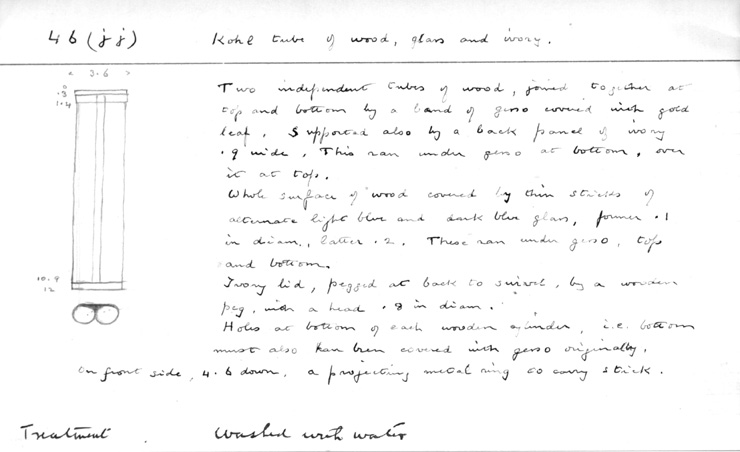 46 (jj) Kohl tube of wood, glass and ivory.
< 3.6 >
0
.3
1.4
10.9
12
Two independent tubes of wood, joined together at
top and bottom by a band of gesso covered with gold
leaf. Supported also by a back panel of ivory
.9 wide, This ran under gesso at bottom, over
it at top.
Whole surface of wood covered by thin sticks of
alternate light blue and dark blue glass, former .1
in diam., latter .2. These ran under gesso, top
and bottom.
Ivory lid, pegged at back to swivel, by a wooden
peg, with a head .8 in diam.
Holes at bottom of each wooden cylinder, i.e. bottom
must also have been covered with gesso originally.
On front side, 4.6 down, a projecting metal ring to carry stick.
Treatment . Washed with water